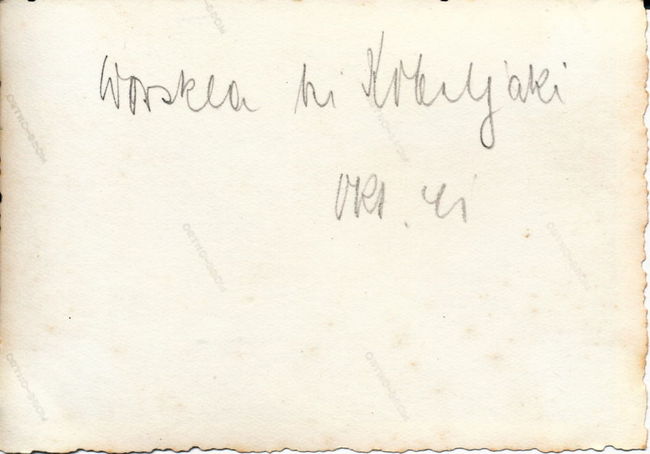 Worskla bei Kobeljaki
Okt. 41